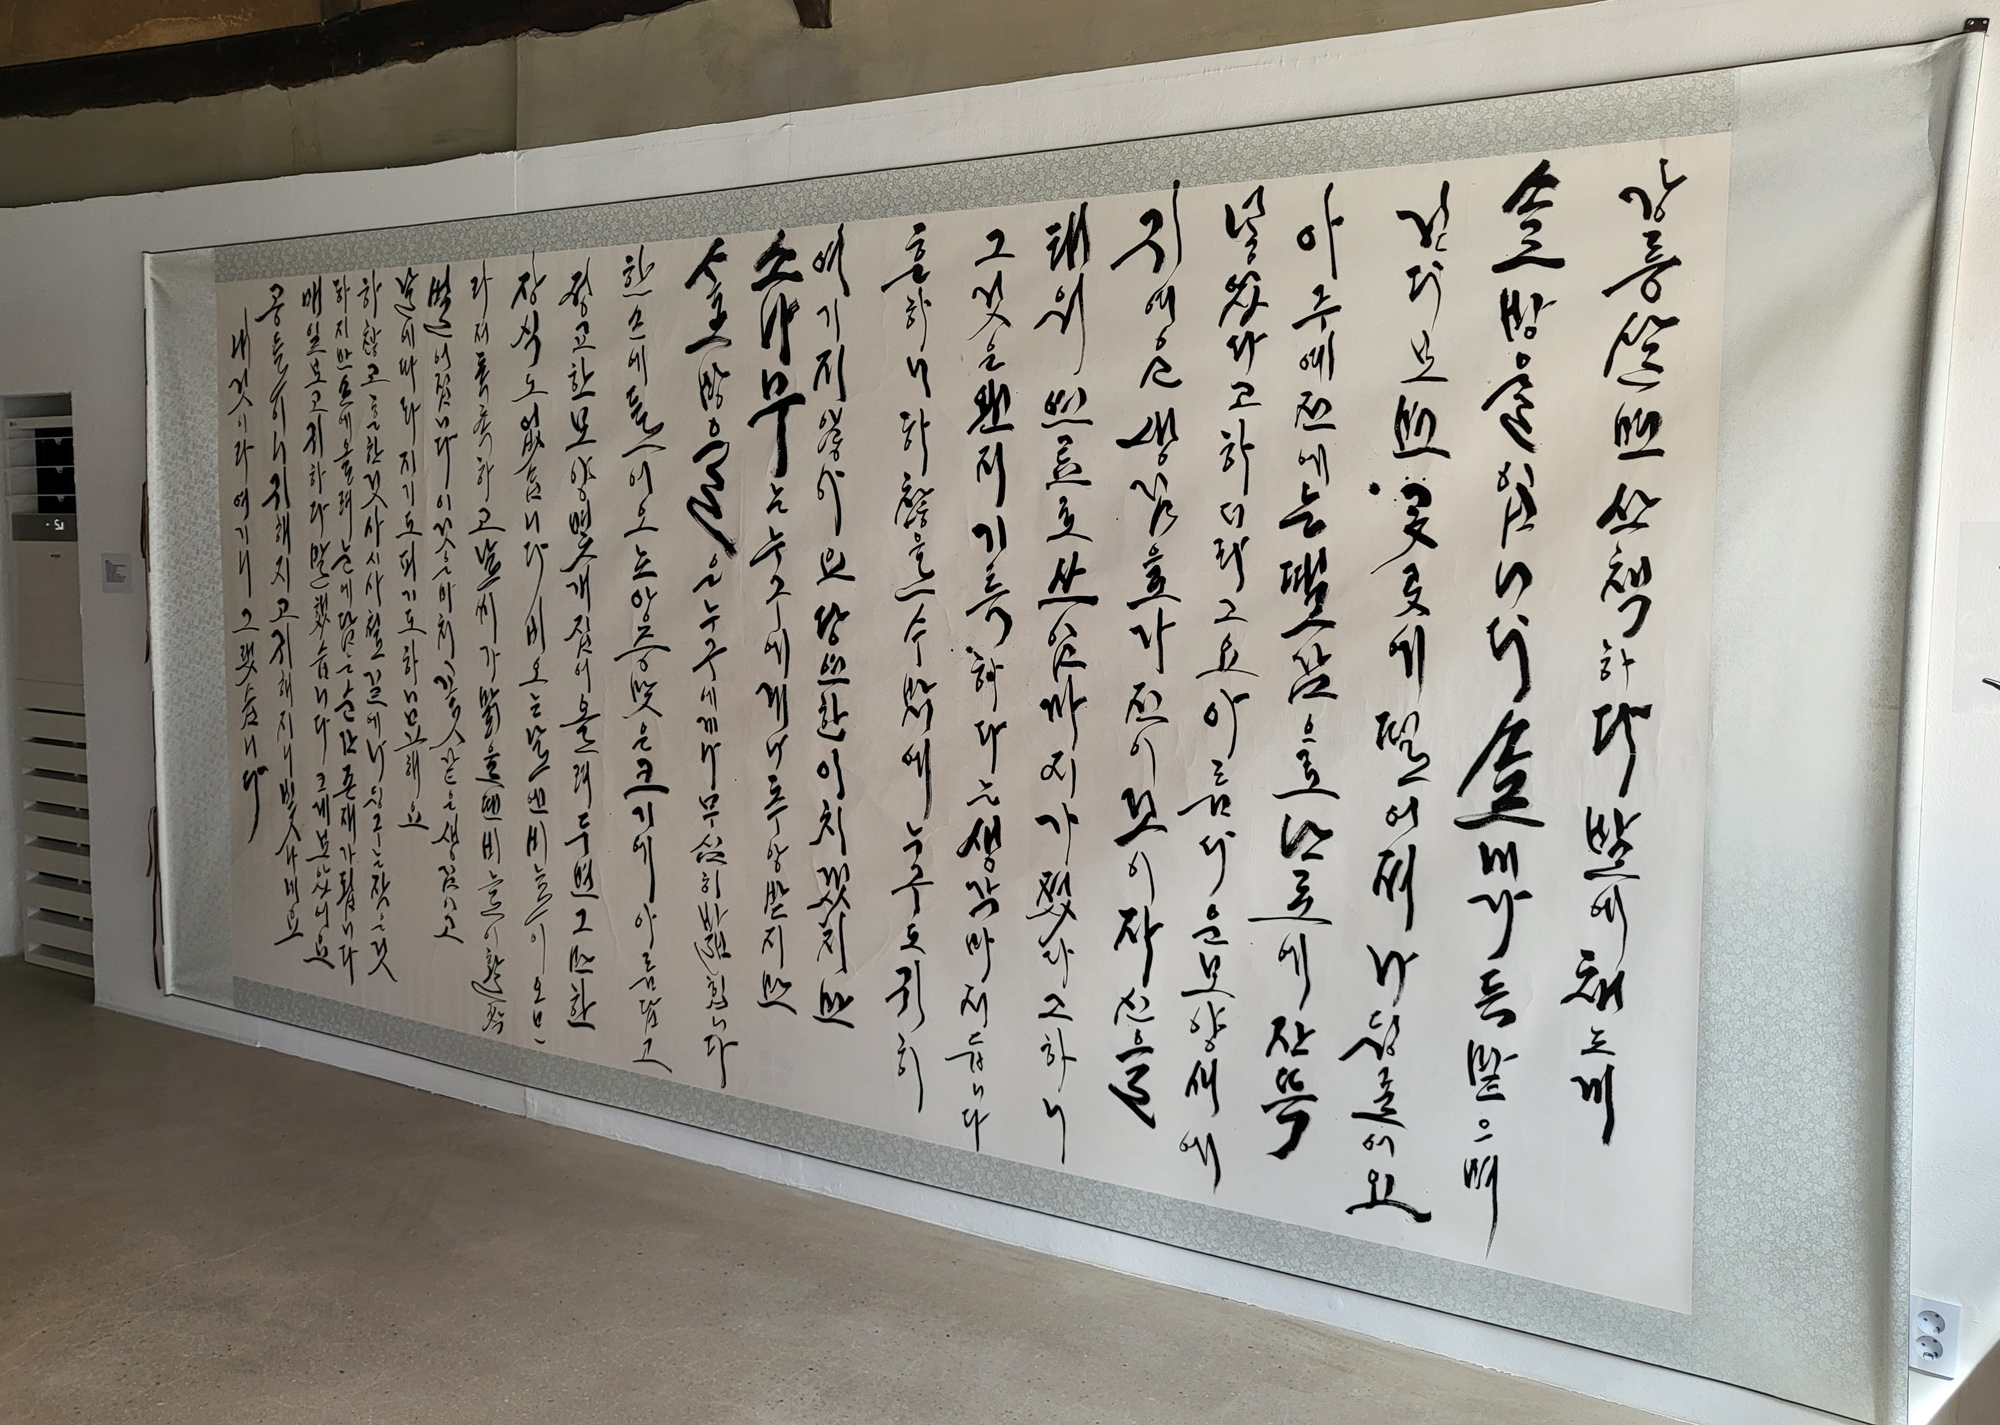 강릉살면산책하다발에채는게
솔방울입니다솔내가득맡으며
걷다보면곳곳에떨어져나뒹굴어요
아주예전에는땔감으로난로에잔뜩
넣었다고하더라고요아름다운모양새에
귀여운생김 이것이자신을
태워연료로쓰임까지가졌다고하니
그것은왠지기특하다는생각마저듭니다
흔하니하찮을수밖에누구도귀히
여기지않아요당연한이치겠지만
소나무는누구에게나추앙받지만
솔방울은누구에게나무심히밟힙니다
한손에들어오는앙증맞은크기에아름답고
정교한모양몇개집어올려두면그만한
장식도없습니다비오는날엔비늘이오므
라져톡톡하고날씨가맑을땐비늘이활짝
벌어집니다이것은마치 같은생김이고
날에따라지기도피기도
하찮고흔한것사시사철길에나뒹구는작은것
하지만손에올려눈에담은순간존재가됩니다
매일보고귀하다말했습니다크게보았어요
공들이니귀해지고귀해지니빛나네요
내것이라여기니그랬습니다